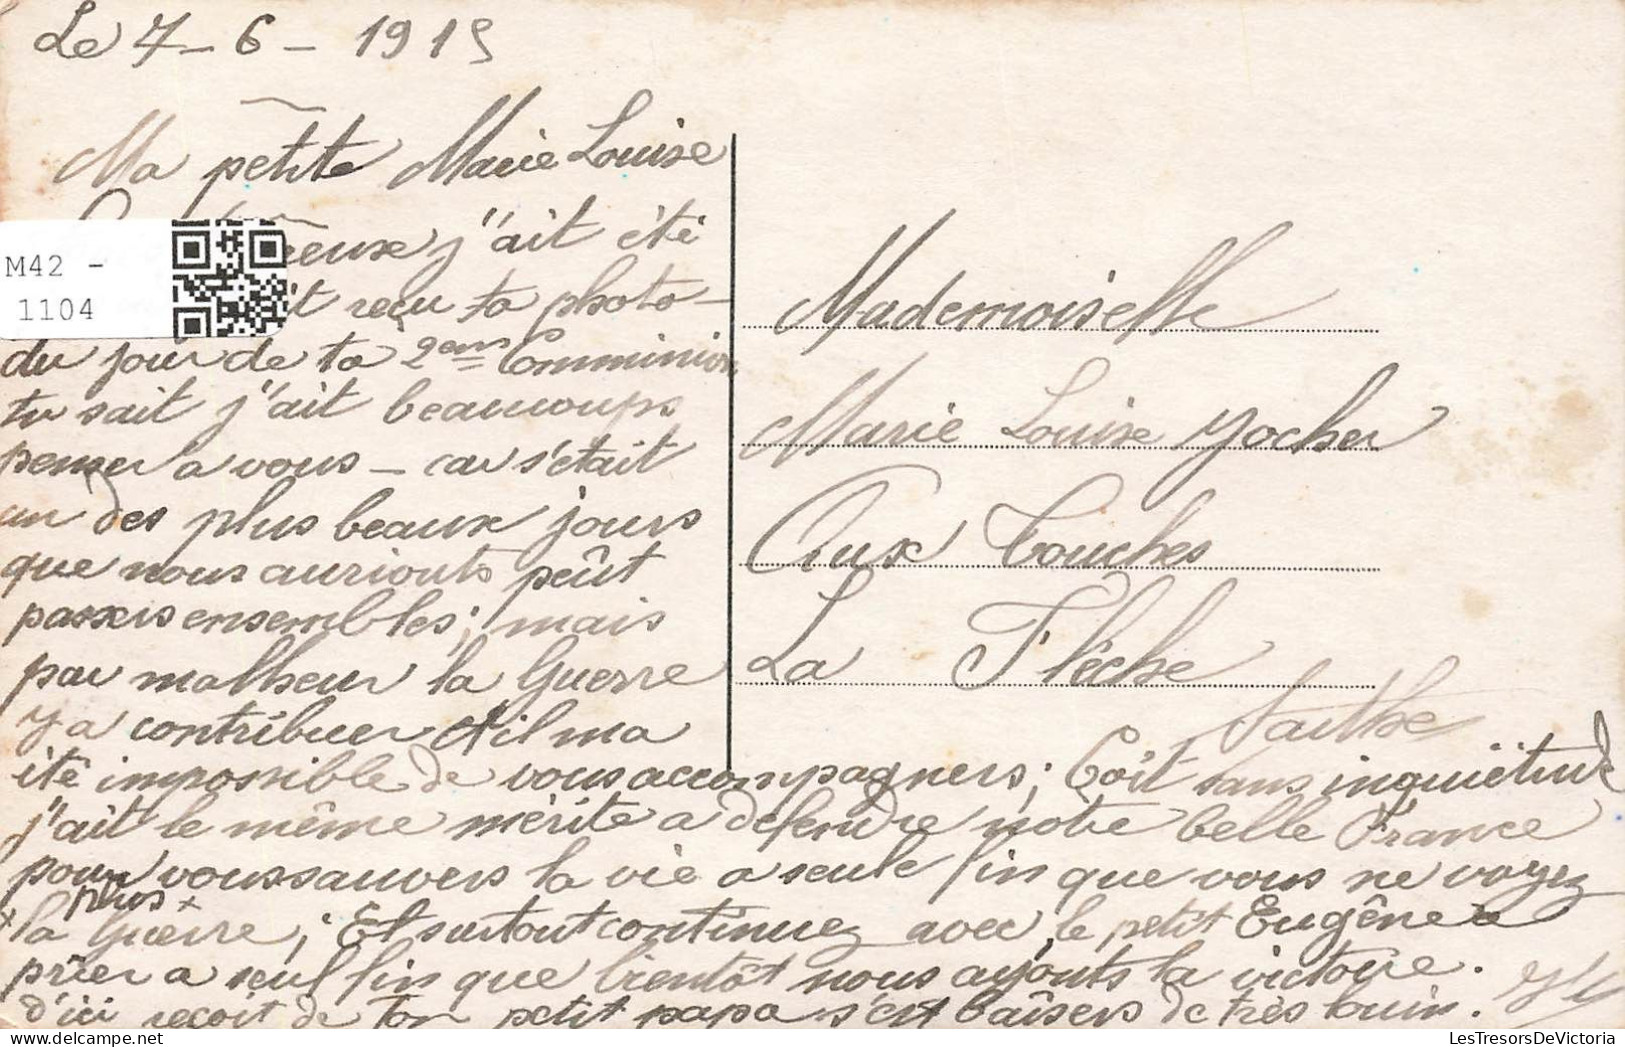 Le 7-6-1915
Ma petite Marie Louise
j'ait été
reçu ta photo-
du jour de ta 2ems Comminion
tu sait j'ait beaucoups
penser a vous - car s'était
un des plus beaux jours
que nous auriouts peût
passeis ensembles; mais
par malheur la Guerre
y a contribuer il ma
été impossible de vous accompagners; Soit sans inquiëtude
j'ait le même mérite a défendre notre belle France
pour vous sauvers la vie a seule fin que vous ne voyez
plus
la Guerre; Et surtout continuez avec le petit Eugêne a
prier a seul fin que bientôt nous ayonts la victoire.
d'ici reçoit de ton petit papa s'est baîsers de très louin.
Mademoiselle
Marie Louise Yocher
Aux Touches
La Flèche
Sarthe
M42 -
1104
LesTresorsDeVictoria